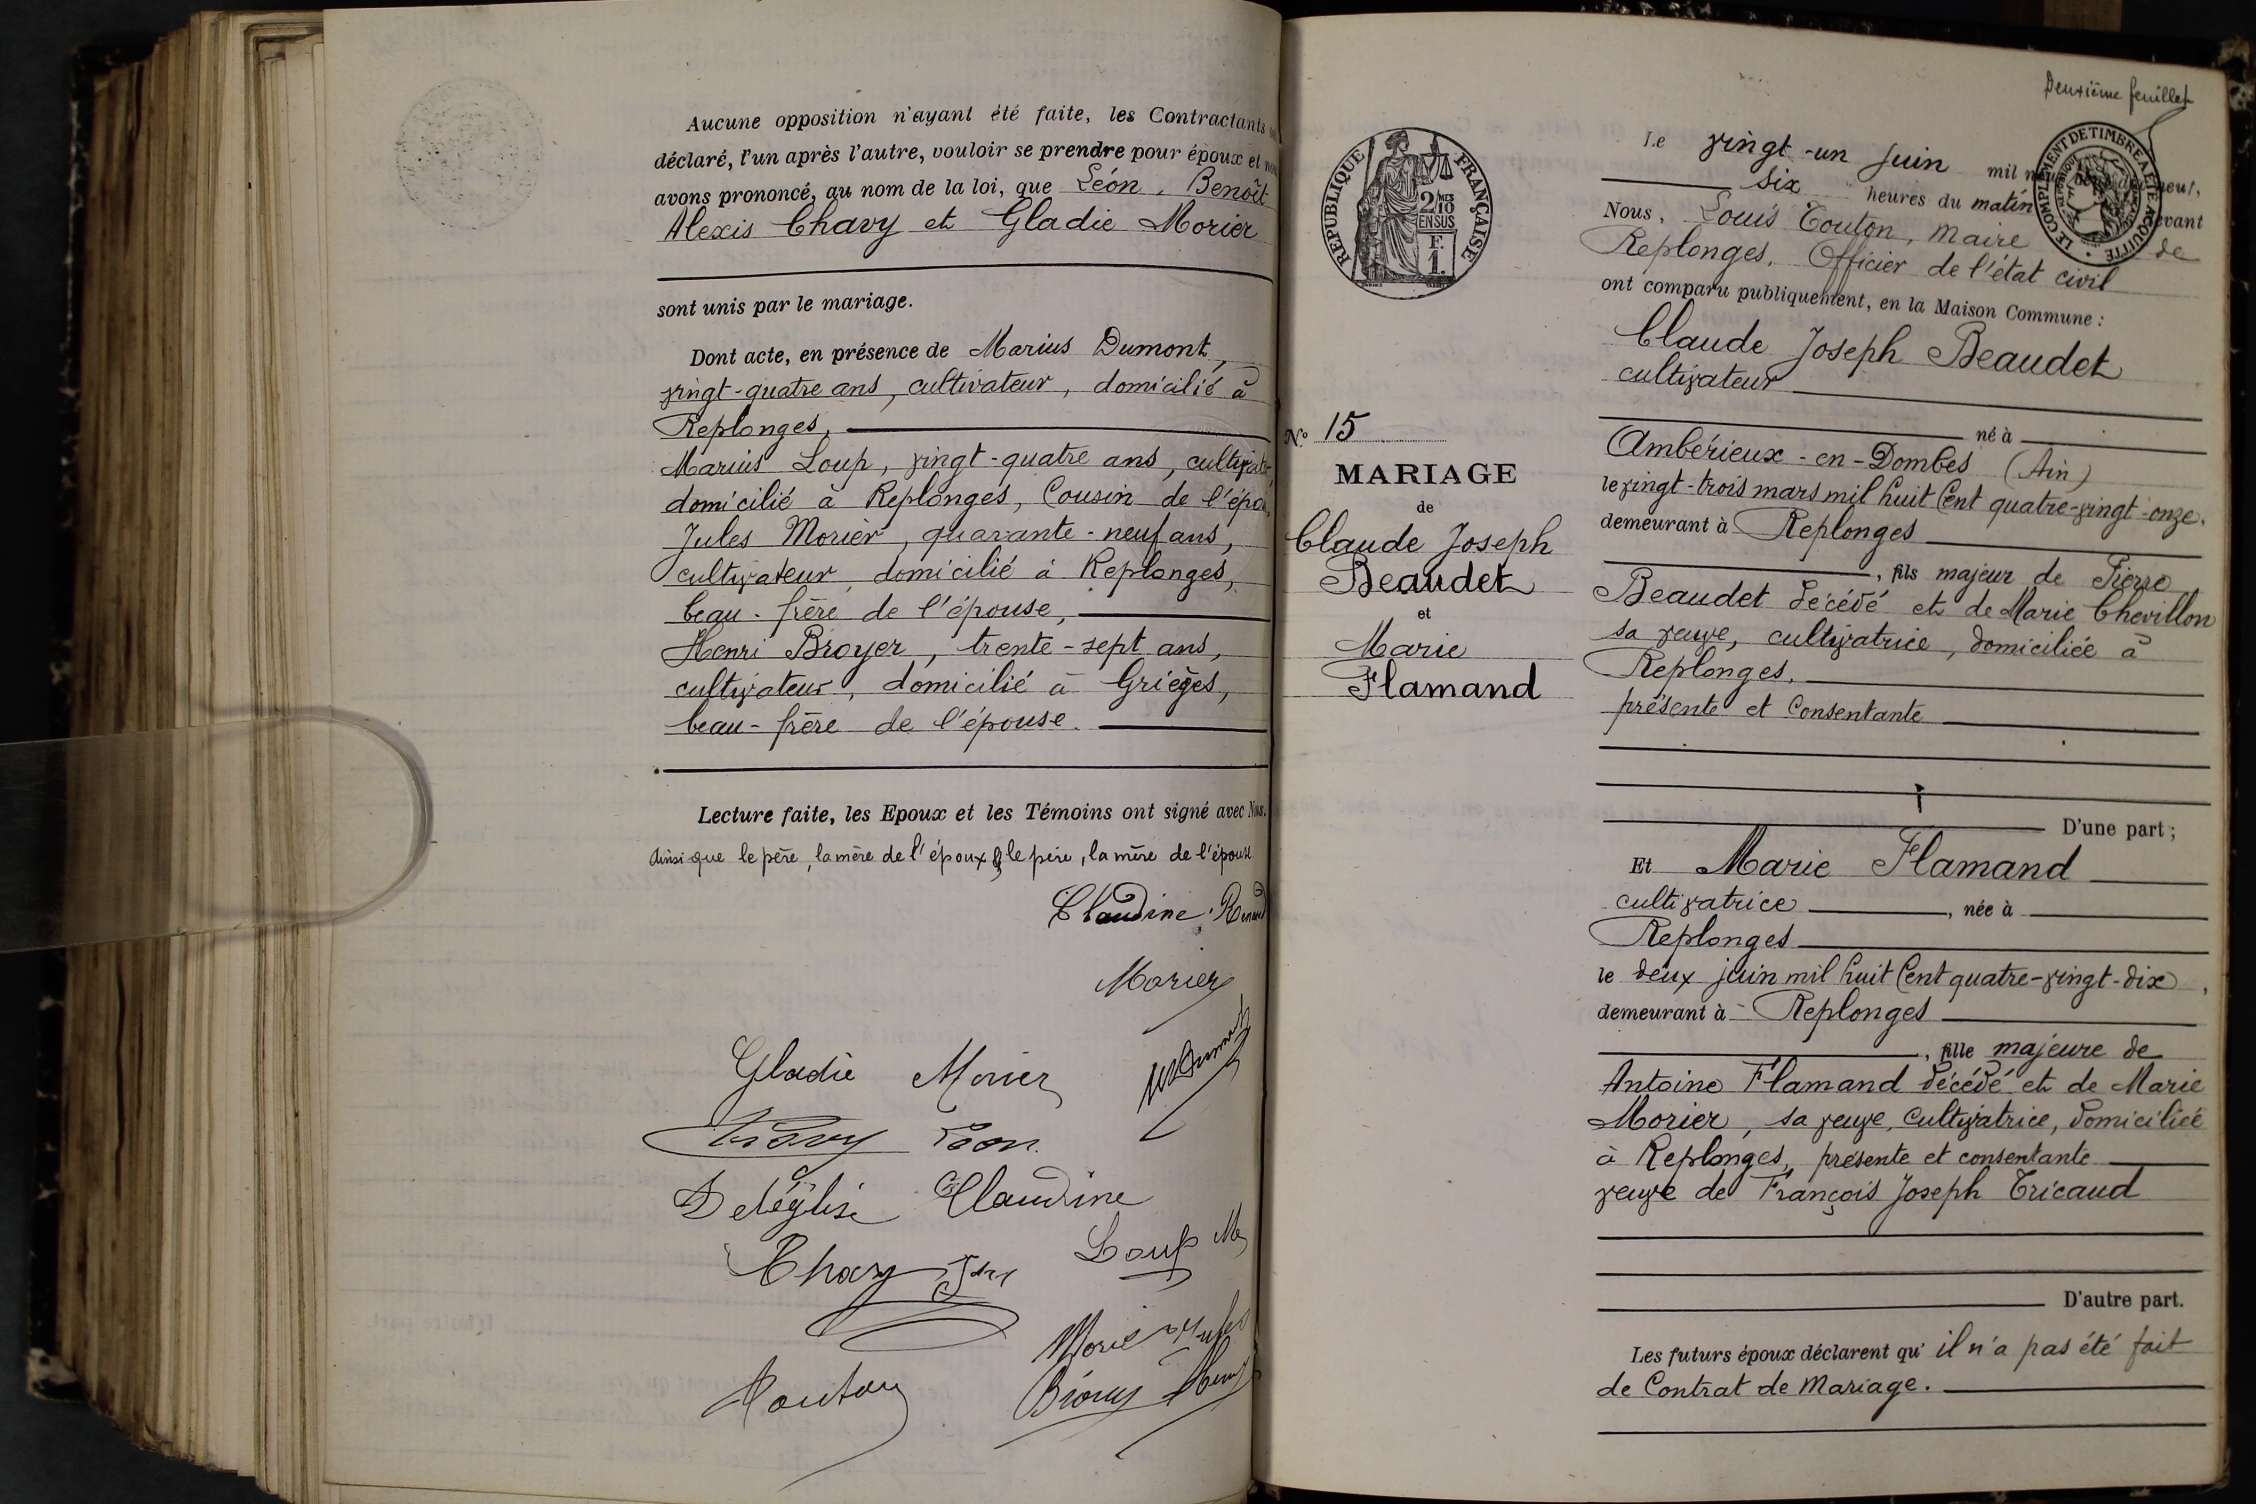 Aucune opposition n'ayant été faite, les Contractants
déclaré, l'un après l'autre, vouloir se prendre pour époux et
avons prononcé, au nom de la loi, que Léon, Benoît
Alexis Chavy et Gladie Morier
sont unis par le mariage.
Dont acte, en présence de Marius Dumont,
vingt-quatre ans, cultivateur, domicilié à
Replonges,
Marius Loup, vingt-quatre ans,
domicilié à Replonges, Cousin de
Jules Morier, quarante-neuf ans,
cultivateur domicilié à Replonges,
beau-frère de l'épouse,
Henri Broyer, trente-sept ans,
cultivateur, domicilié à Grièges,
beau-frère de l'épouse.
Lecture faite, les Epoux et les Témoins ont signé avec Nous.
Ainsi que le père, la mère de l'époux & le père, la mère de l'épouse
Claudine
Morier
Gladie Morier
Chavy Léon
Deléglise Claudine
Chavy
Loup M
Morier Jules
Broyer Henri
Touton
RÉPUBLIQUE FRANÇAISE
2/10
MES
EN SUS
F.
1.
N.º 15
MARIAGE
de
Claude Joseph
Beaudet
et
Marie
Flamand
Deuxième feuillet
LE COMPLEMENT DE TIMBRE A ETE ACQUITTE
Le vingt-un Juin mil neuf,
six heures du matin devant
Nous, Louis Touton, Maire de
Replonges, Officier de l'état civil
ont comparu publiquement, en la Maison Commune :
Claude Joseph Beaudet
cultivateur
né à
Ambérieux-en-Dombes (Ain)
le vingt-trois mars mil huit Cent quatre-vingt-onze.
demeurant à Replonges
, fils majeur de Pierre
Beaudet décédé et de Marie Chevillon
sa veuve, cultivatrice, domiciliée à
Replonges,
présente et Consentante
D'une part ;
Et Marie Flamand
cultivatrice , née à
Replonges
le deux juin mil huit Cent quatre-vingt-dix ,
demeurant à Replonges
, fille majeure de
Antoine Flamand décédé et de Marie
Morier, sa veuve, Cultivatrice, domiciliée
à Replonges, présente et consentante
veuve de François Joseph Tricaud
D'autre part.
Les futurs époux déclarent qu' il n'a pas été fait
de Contrat de Mariage.